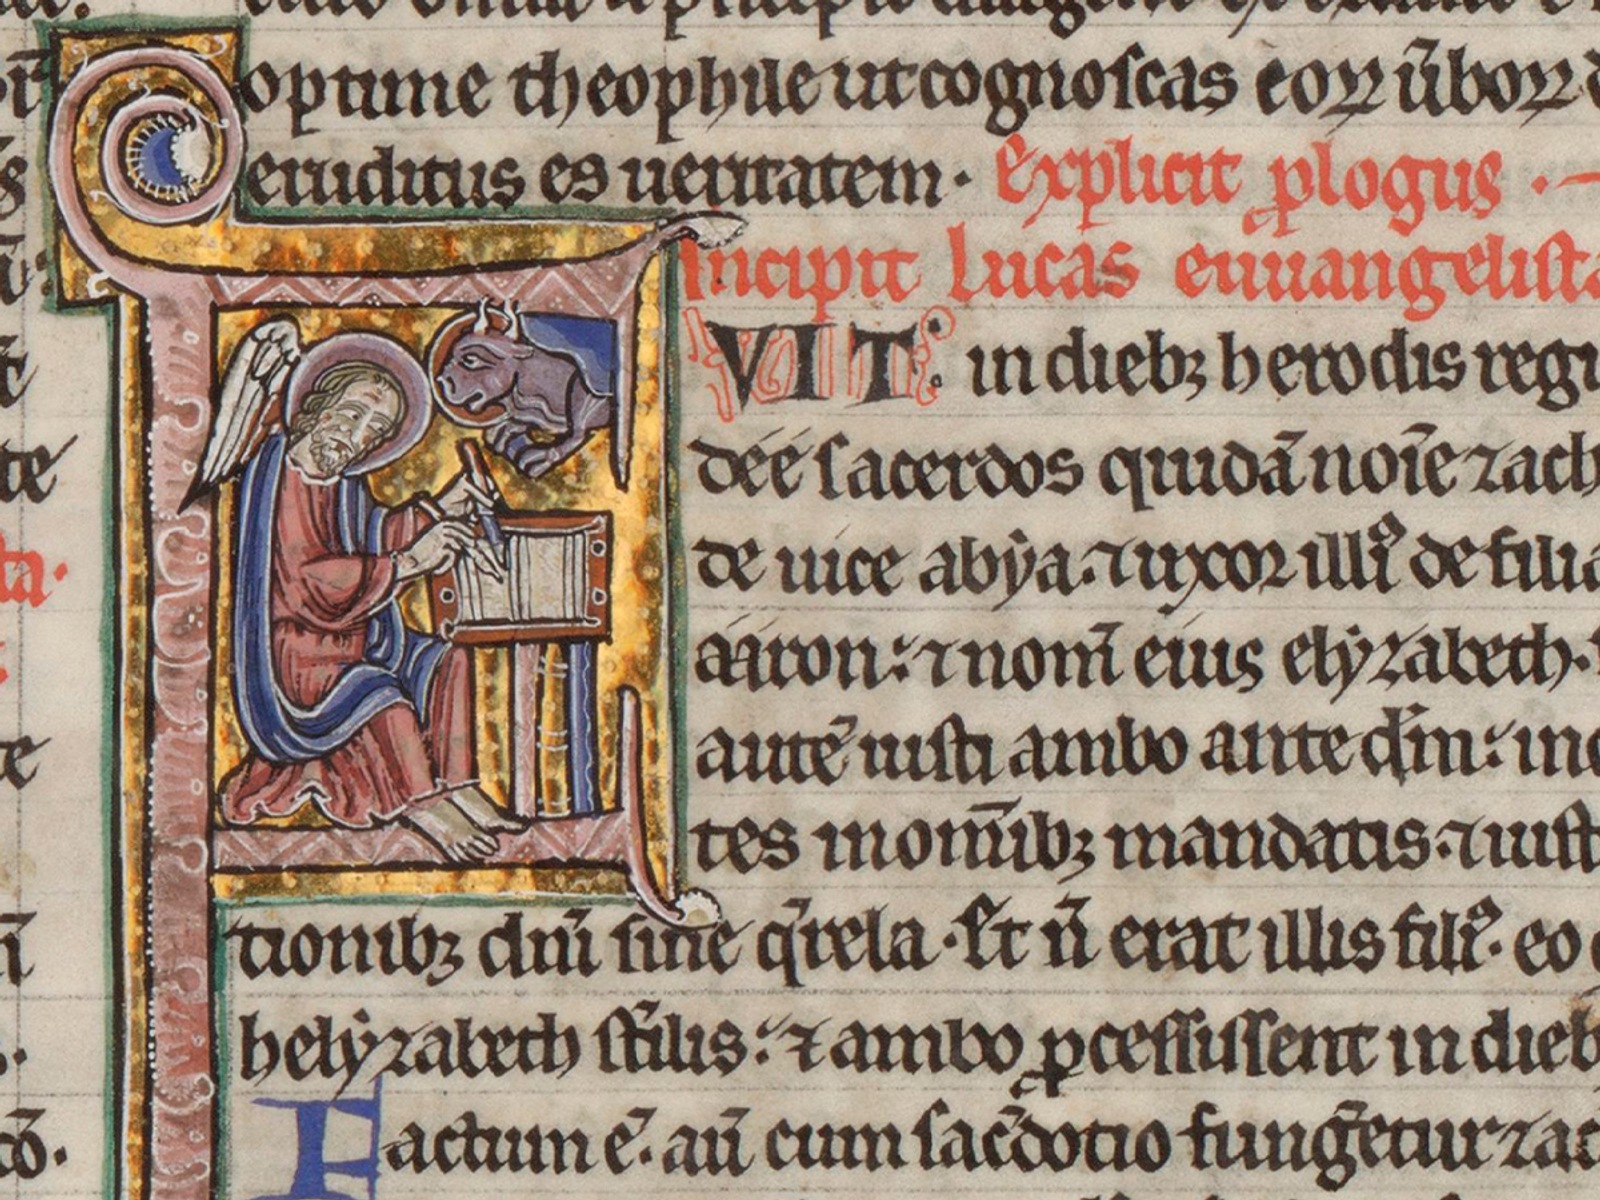 optime theophile ut cognoscas eoꝝ ũboꝝ
eruditus es ueritatem · Explicit ꝓlogus · —
Incipit lucas euuangelista
FVIT in diebꝫ herodis regi
dee sacerdos quidã noı̃e zach
de uice abẏa. ⁊ uxor illiꝰ de filia
aaron: ⁊ nom̃ eius elẏzabeth.
autẽ iusti ambo ante dñm: inc
tes in om̃ibꝫ mandatis. ⁊ iusti
tionibꝫ dñi sine q̃rela · Et ñ erat illis filiꝰ. eo
helẏzabeth st̃ilis: ⁊ ambo ꝓcessissent in dieb
Factum ẽ. aũ cum sac̃dotio fung̃etur zac